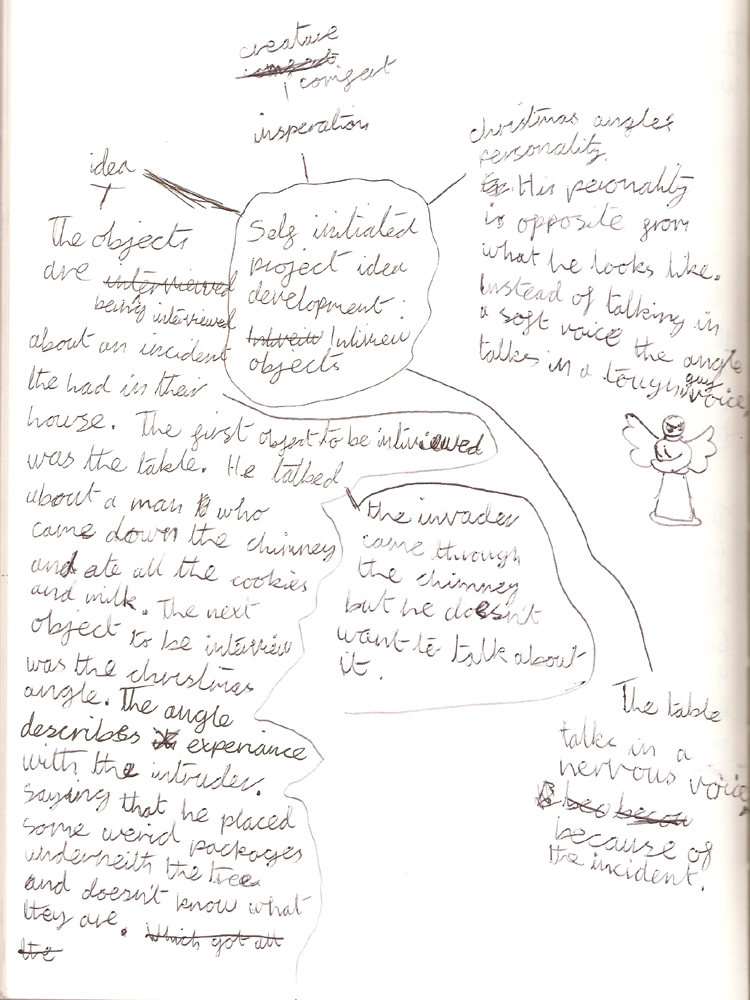 creature
comfert
insperation
idea
Self initiated
project idea
development:
Intiview
objects
christmas angles
personality.
His personality
is opposite from
what he looks like.
Instead of talking in
a soft voice the angle
talks in a tough guy voice,
The objects
are interviewed
being interviewed
about an incident
the had in their
house. The first object to be intiviewed
was the table. He talked
about a man who
came down the chimney
and ate all the cookies
and milk. The next
object to be interview
was the christmas
angle. The angle
describes experiance
with the intruder.
saying that he placed
some weird packages
underneith the tree
and doesn't know what
they are. which got all
the
the invader
came through
the chimney
but he doesn't
want to talk about
it.
The table
talks in a
nervous voice,
because of
the incident.